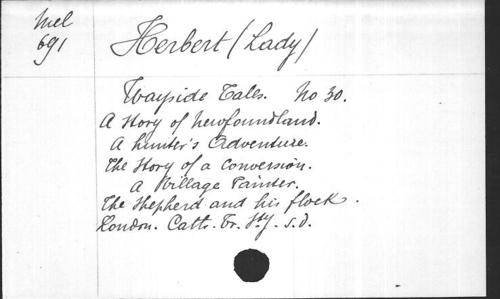 Mel
691
Herbert (Lady)
Wayside Tales. No 30.
A Story of Newfoundland.
A hunter's Adventure.
The Story of a Conversion.
A Village Painter.
The Shepherd and his flock.
London. Cath. Tr. Sty. s.d.